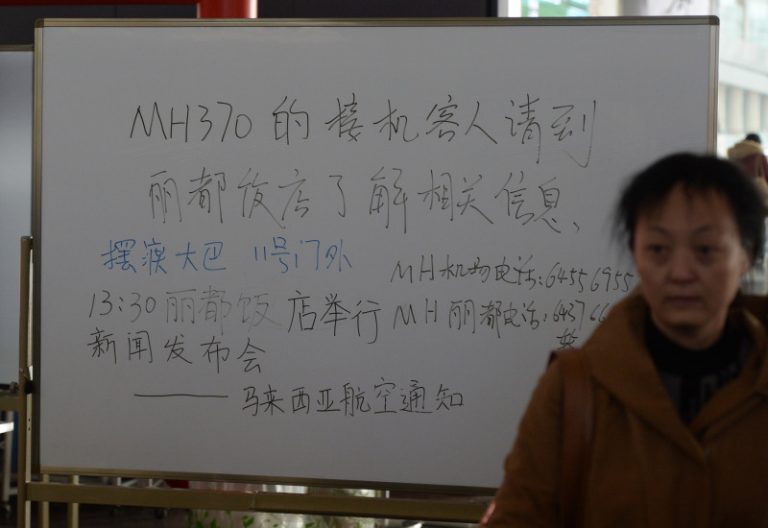 MH370的接机客人请到
丽都饭店了解相关信息、
摆渡大巴 11号门外
MH机场电话:64556955
13:30丽都饭店举行
MH丽都电话:6437
新闻发布会
——马来西亚航空通知